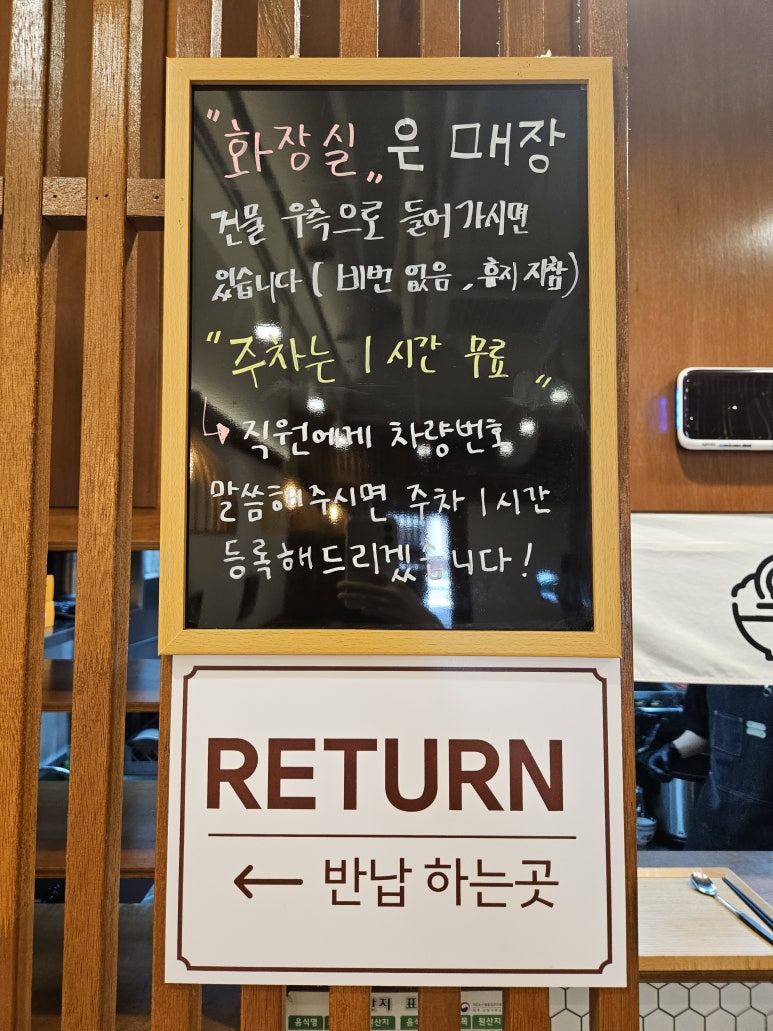 "화장실" 은 매장
건물 우측으로 들어가시면
있습니다 ( 비번 없음 , 휴지 지참)
"주차는 1시간 무료"
↳ 직원에게 차량번호
말씀해주시면 주차 1시간
등록해드리겠습니다!
RETURN
← 반납 하는곳
산지 표
음식명 원산지 음식 목 원산지